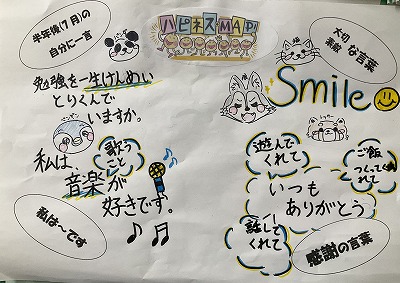 半年後(7月)の
自分に一言
ハピネスMAP!
大切な言葉
素敵
勉強を一生けんめい
とりくんで
いますか。
Smile
私は、
歌う
こと
音楽が
好きです。
私は～です
遊んで
くれて
ご飯
つくってくれて
いつも
ありがとう
話して
くれて
感謝の言葉